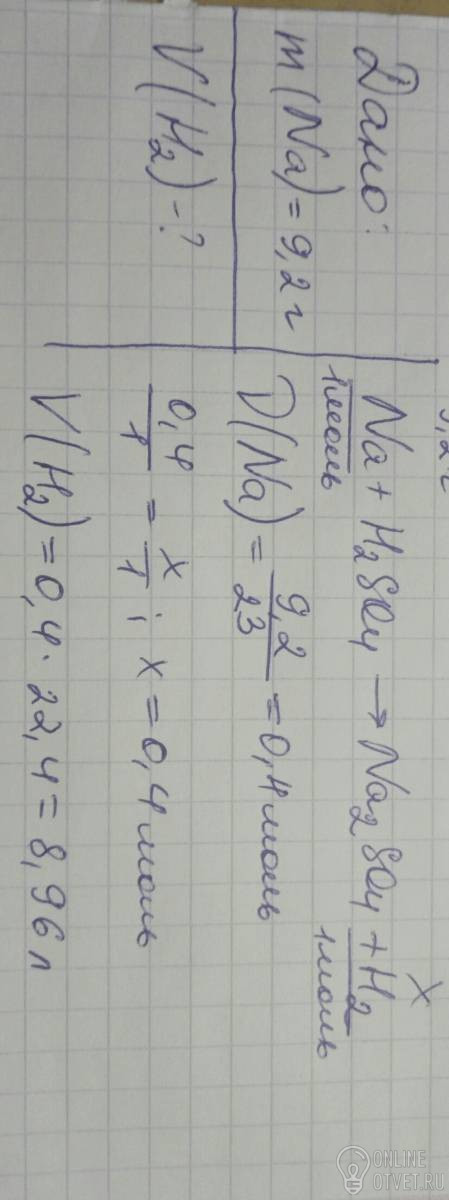 Дано:
m(Na)=9,2г
V(H2)-?
9,2г
x
Na + H2SO4 → Na2SO4 + H2
1моль
1моль
ν(Na) = 9,2/23 = 0,4 моль
0,4/1 = x/1; x = 0,4 моль
V(H2) = 0,4 · 22,4 = 8,96 л
ONLINE
OTVET.RU